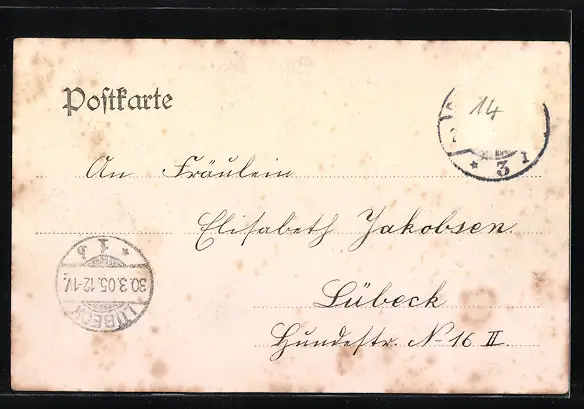 Postkarte
14
* 3 1
An Fräulein
Elisabeth Jakobsen.
Lübeck
Hundestr. N 16 II.
LÜBECK
30.3.05.12-1V.
* 1 b